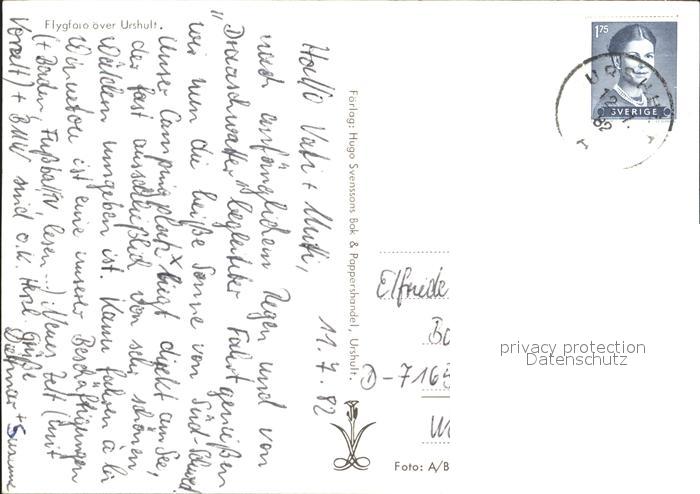 Flygfoto över Urshult.
11.7.82
Hallo Vati + Mutti,
nach anfänglichem Regen und von
"Drauschwalter" begleiteter Fahrt genießen
wir nun die heiße Sonne von Süd-Schwed
Unser Campingplatz liegt direkt am See,
der fast ausschließlich von sehr schönen
Wäldern umgeben ist. Kanu fahren à la
Winnetou ist eine unserer Beschäftigungen
(+ Baden, Fußball, lesen ...) Neues Zelt (mit
Vorzelt) + BMW sind o.k. Herzl. Grüße
+ Susanne
Förlag: Hugo Svenssons Bok & Pappershandel, Urshult.
1.75
SVERIGE
82
Elfriede
D-7165
Foto: A/B
privacy protection
Datenschutz